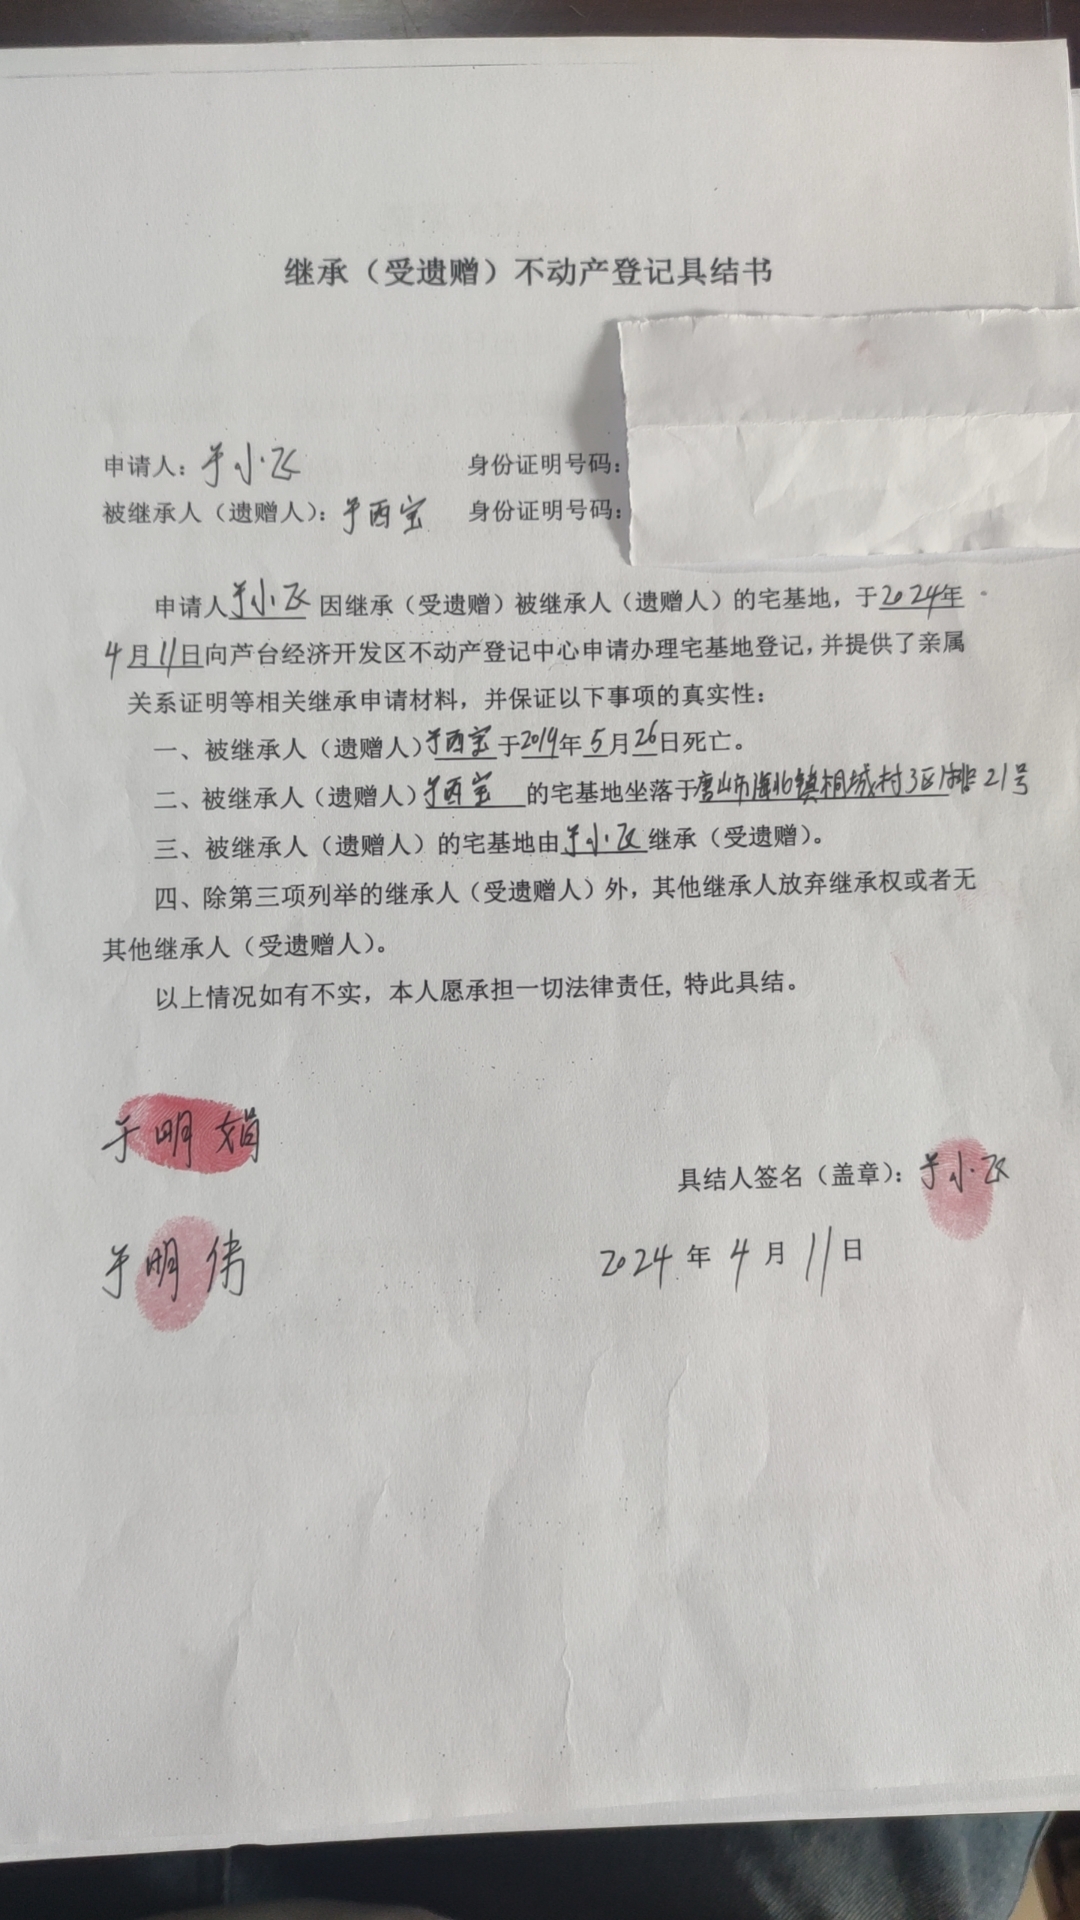 继承（受遗赠）不动产登记具结书
申请人：于小飞 身份证明号码：
被继承人（遗赠人）：于西宝 身份证明号码：
申请人于小飞因继承（受遗赠）被继承人（遗赠人）的宅基地，于2024年
4月11日向芦台经济开发区不动产登记中心申请办理宅基地登记，并提供了亲属
关系证明等相关继承申请材料，并保证以下事项的真实性：
一、被继承人（遗赠人）于西宝于2019年5月26日死亡。
二、被继承人（遗赠人）于西宝的宅基地坐落于唐山市海北镇桐城村3区1排21号
三、被继承人（遗赠人）的宅基地由于小飞继承（受遗赠）。
四、除第三项列举的继承人（受遗赠人）外，其他继承人放弃继承权或者无
其他继承人（受遗赠人）。
以上情况如有不实，本人愿承担一切法律责任，特此具结。
于明娟
具结人签名（盖章）：于小飞
于明伟
2024年4月11日